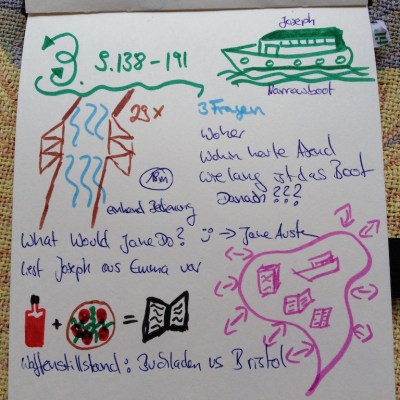 3. S. 138-191
Joseph
Narrowboat
29x
3 Fragen
Woher
Wohin heute Abend
Wie lang ist das Boot
Danach???
einhand Bedienung
What Would Jane Do? :) → Jane Austen
liest Joseph aus Emma vor
+ =
Waffenstillstand: Buchladen vs Bristol